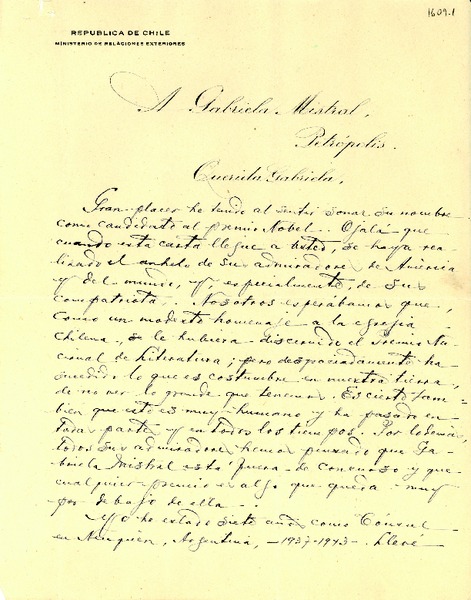 1609.1
REPUBLICA DE CHILE
MINISTERIO DE RELACIONES EXTERIORES
A Gabriela Mistral,
Petrópolis.
Querida Gabriela,
Gran placer he tenido al sentir sonar su nombre
como candidato al premio Nobel.. Ojalá que
cuando esta carta llegue a usted, se haya rea-
lizado el anhelo de sus admiradores de América
y del mundo, y especialmente, de sus
compatriotas.. Nosotros esperábamos que,
como un modesto homenaje a la egregia
chilena, se le hubiera discernido el Premio Na-
cional de Literatura; pero desgraciadamente ha
sucedido lo que es costumbre en nuestra tierra,
de no ver lo grande que tenemos. Es cierto tam-
bien que esto es muy humano y ha pasado en
todas partes y en todos los tiempos. Por lo demás,
todos sus admiradores hemos pensado que Ga-
briela Mistral está fuera de concurso y que
cualquier premio es algo que queda muy
por debajo de ella...
Yo he estado siete años como Cónsul
en Neuquén, Argentina, -1937-1943-. Llevé